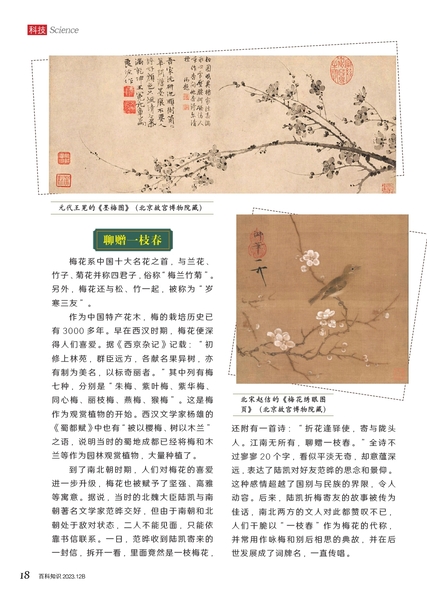 科技 Science
元代王冕的《墨梅图》（北京故宫博物院藏）
聊赠一枝春
梅花系中国十大名花之首，与兰花、
竹子、菊花并称四君子，俗称“梅兰竹菊”。
另外，梅花还与松、竹一起，被称为“岁
寒三友”。
作为中国特产花木，梅的栽培历史已
有3000多年。早在西汉时期，梅花便深
得人们喜爱。据《西京杂记》记载：“初
修上林苑，群臣远方，各献名果异树，亦
有制为美名，以标奇丽者。”其中列有梅
七种，分别是“朱梅、紫叶梅、紫华梅、
同心梅、丽枝梅、燕梅、猴梅”。这是梅
作为观赏植物的开始。西汉文学家杨雄的
《蜀都赋》中也有“被以樱梅，树以木兰”
之语，说明当时的蜀地成都已经将梅和木
兰等作为园林观赏植物，大量种植了。
到了南北朝时期，人们对梅花的喜爱
进一步升级，梅花也被赋予了坚强、高雅
等寓意。据说，当时的北魏大臣陆凯与南
朝著名文学家范晔交好，但由于南朝和北
朝处于敌对状态，二人不能见面，只能依
靠书信联系。一日，范晔收到陆凯寄来的
一封信，拆开一看，里面竟然是一枝梅花，
北宋赵佶的《梅花绣眼图
页》（北京故宫博物院藏）
还附有一首诗：“折花逢驿使，寄与陇头
人。江南无所有，聊赠一枝春。”全诗不
过寥寥20个字，看似平淡无奇，却意蕴深
远，表达了陆凯对好友范晔的思念和景仰。
这种感情超越了国别与民族的界限，令人
动容。后来，陆凯折梅寄友的故事被传为
佳话，南北两方的文人对此都赞叹不已，
人们干脆以“一枝春”作为梅花的代称，
并常用作咏梅和别后相思的典故，并在后
世发展成了词牌名，一直传唱。
18 百科知识 2023.12B